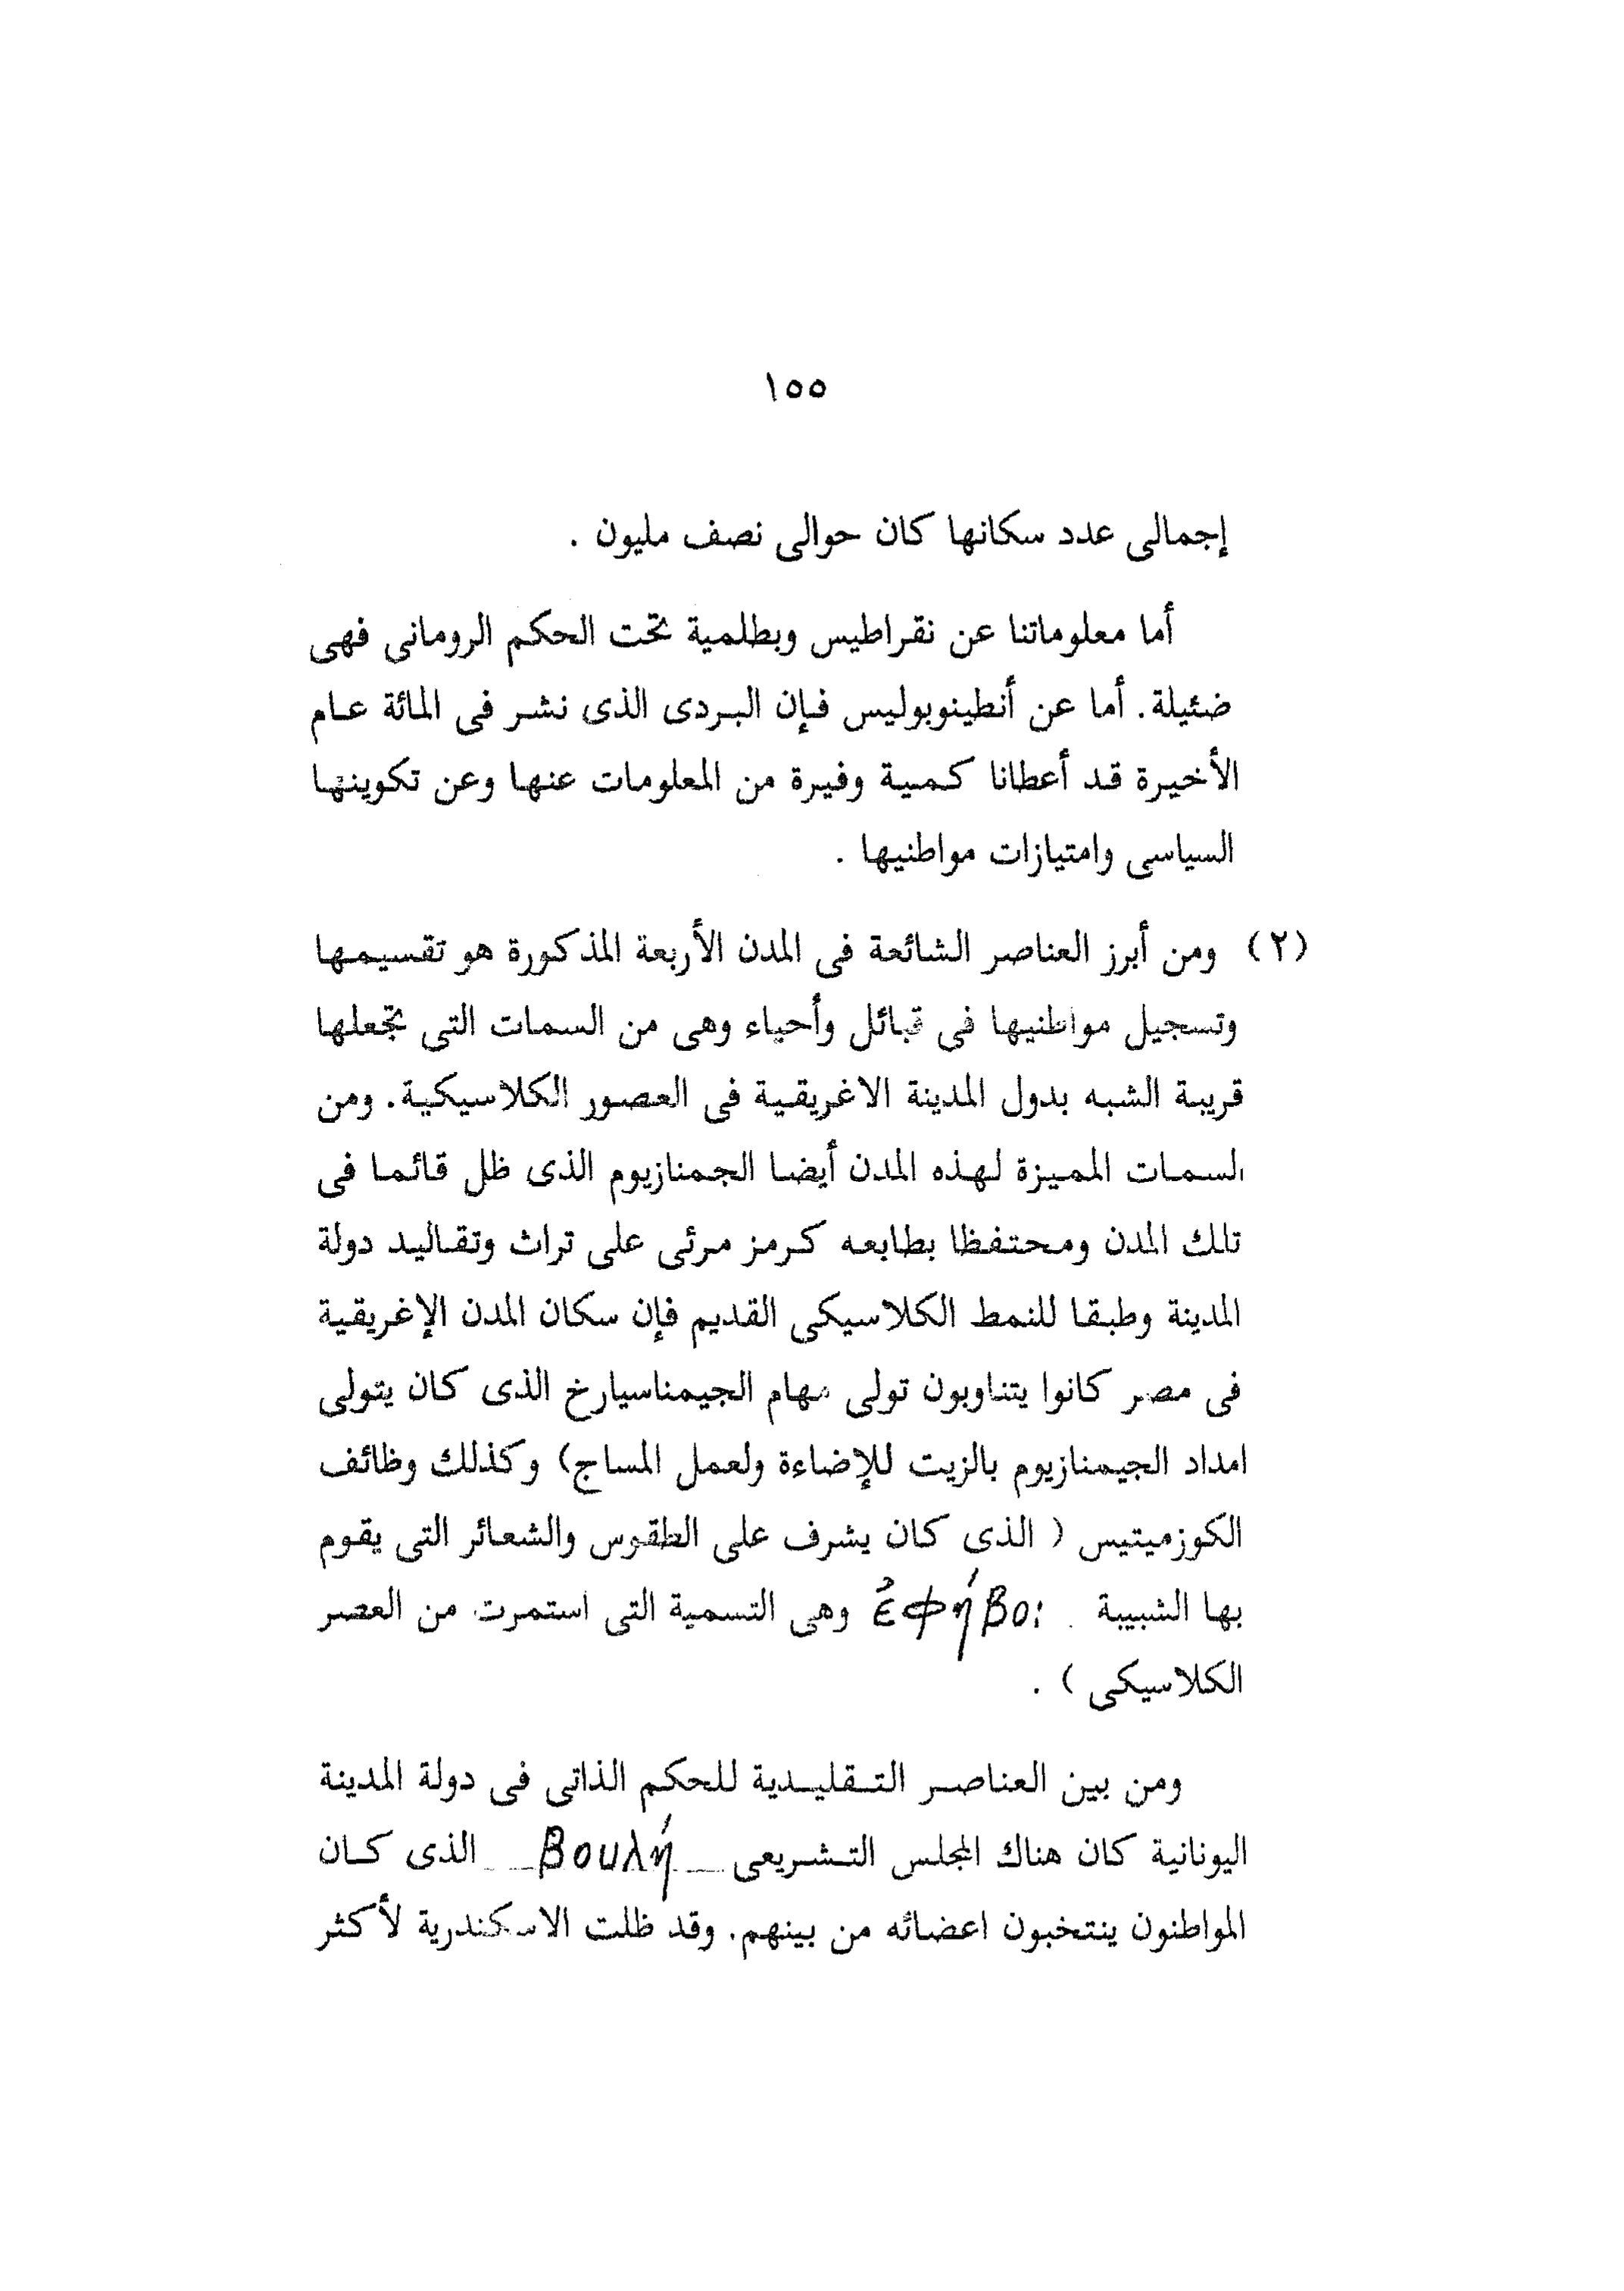 ١٥٥
إجمالى عدد سكانها كان حوالى نصف مليون .
أما معلوماتنا عن نقراطيس وبطلمية تحت الحكم الرومانى فهى
ضئيلة. أما عن أنطينوبوليس فإن البردى الذى نشر فى المائة عام
الأخيرة قد أعطانا كمية وفيرة من المعلومات عنها وعن تكوينها
السياسى وامتيازات مواطنيها .
(٢) ومن أبرز العناصر الشائعة فى المدن الأربعة المذكورة هو تقسيمها
وتسجيل مواطنيها فى قبائل وأحياء وهى من السمات التى تجعلها
قريبة الشبه بدول المدينة الاغريقية فى العصور الكلاسيكية. ومن
السمات المميزة لهذه المدن أيضا الجمنازيوم الذى ظل قائما فى
تلك المدن ومحتفظا بطابعه كرمز مرئى على تراث وتقاليد دولة
المدينة وطبقا للنمط الكلاسيكى القديم فإن سكان المدن الإغريقية
فى مصر كانوا يتناوبون تولى مهام الجيمناسيارخ الذى كان يتولى
امداد الجيمنازيوم بالزيت للإضاءة ولعمل المساج) وكذلك وظائف
الكوزميتيس ( الذى كان يشرف على الطقوس والشعائر التى يقوم
بها الشبيبة ἐφήβοι وهى التسمية التى استمرت من العصر
الكلاسيكى ) .
ومن بين العناصر التقليدية للحكم الذاتى فى دولة المدينة
اليونانية كان هناك المجلس التشريعى βουλή الذى كان
المواطنون ينتخبون اعضائه من بينهم. وقد ظلت الاسكندرية لأكثر